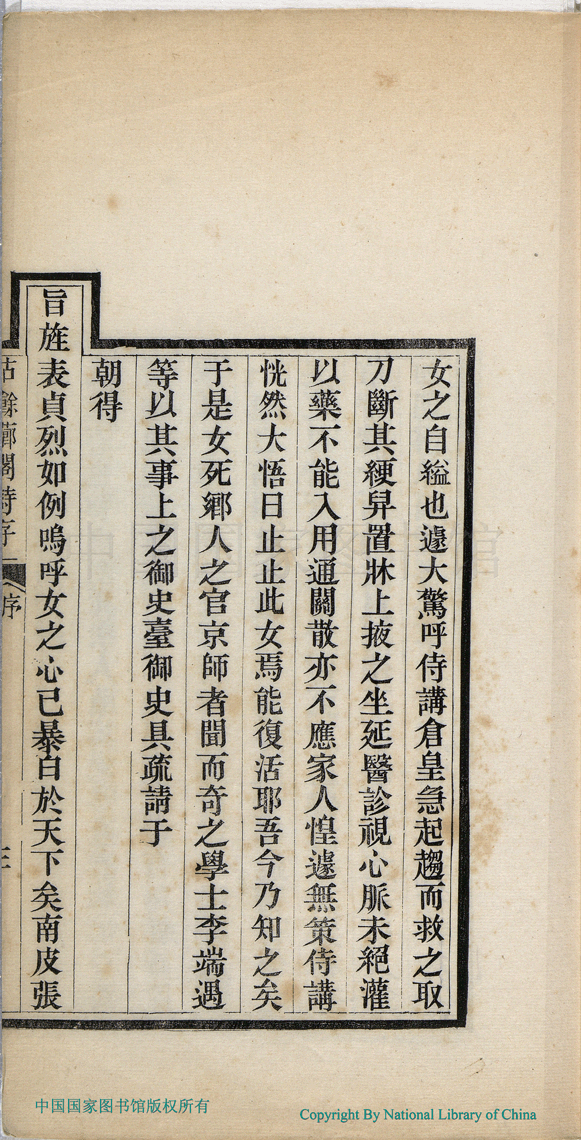 女之自縊也遽大驚呼侍講倉皇急起趨而救之取
刀斷其綆舁置牀上掖之坐延醫診視心脈未絕灌
以藥不能入用通關散亦不應家人惶遽無策侍講
恍然大悟曰止止此女焉能復活耶吾今乃知之矣
于是女死鄉人之官京師者聞而奇之學士李端遇
等以其事上之御史臺御史具疏請于
朝得
旨旌表貞烈如例嗚呼女之心已暴白於天下矣南皮張
餘 閣詩序
序
中国国家图书馆版权所有
Copyright By National Library of China